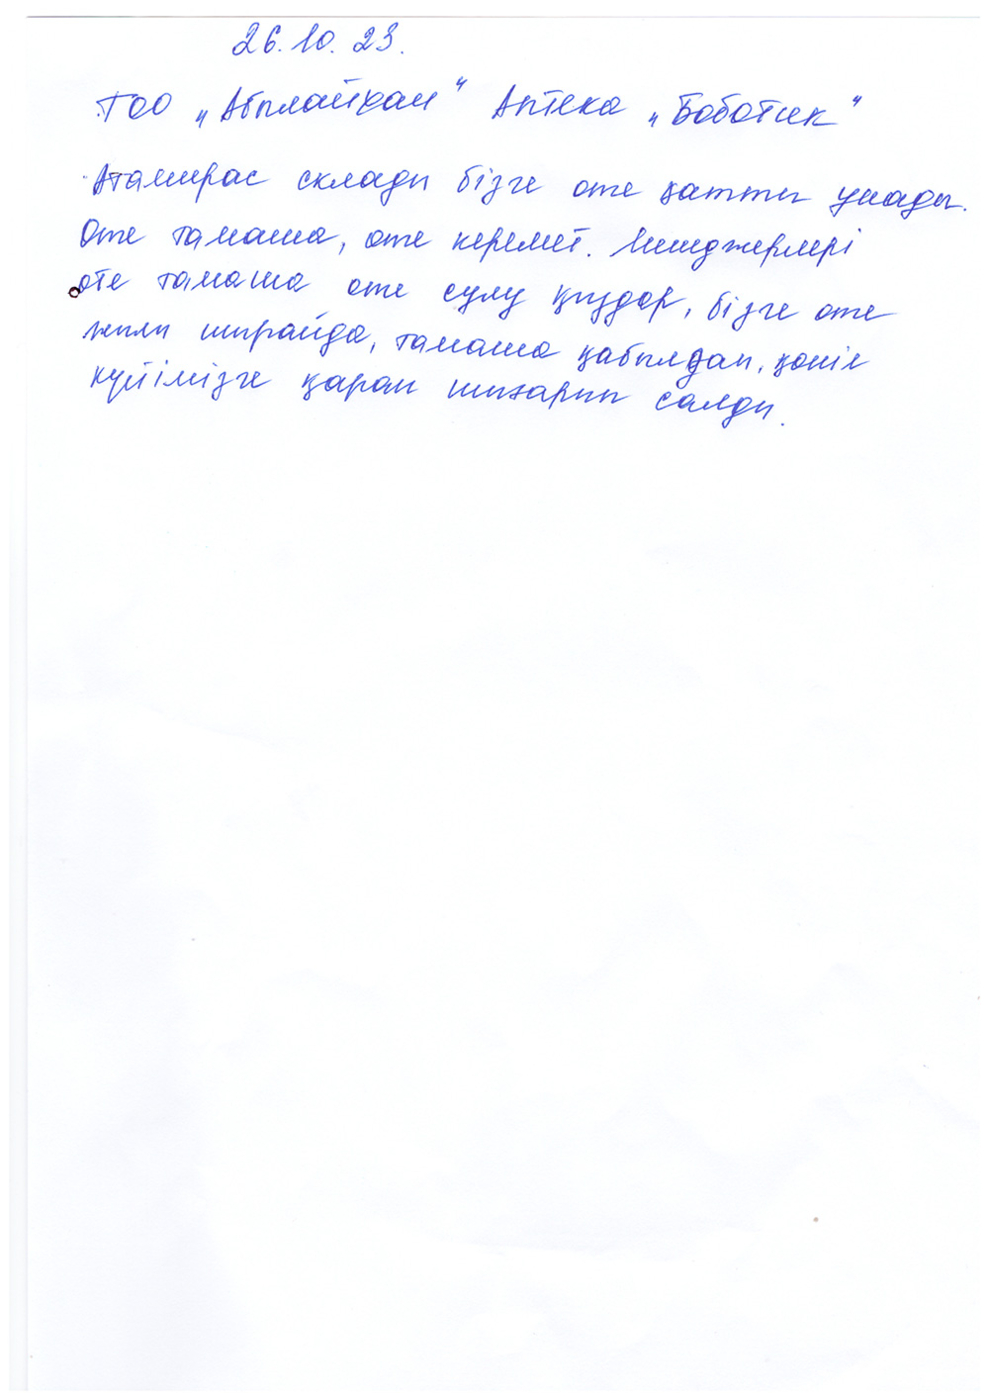 26.10.23.
ТОО „Абылайхан" Аптека „Боботик"
Атамирас склады бізге оте қатты ұнады.
Оте тамаша, оте керемет. Менеджерлері
оте тамаша оте сулу қыздар, бізге оте
жылы шырайда, тамаша қабылдап, қоніл
күйімізге қарап шығарып салды.